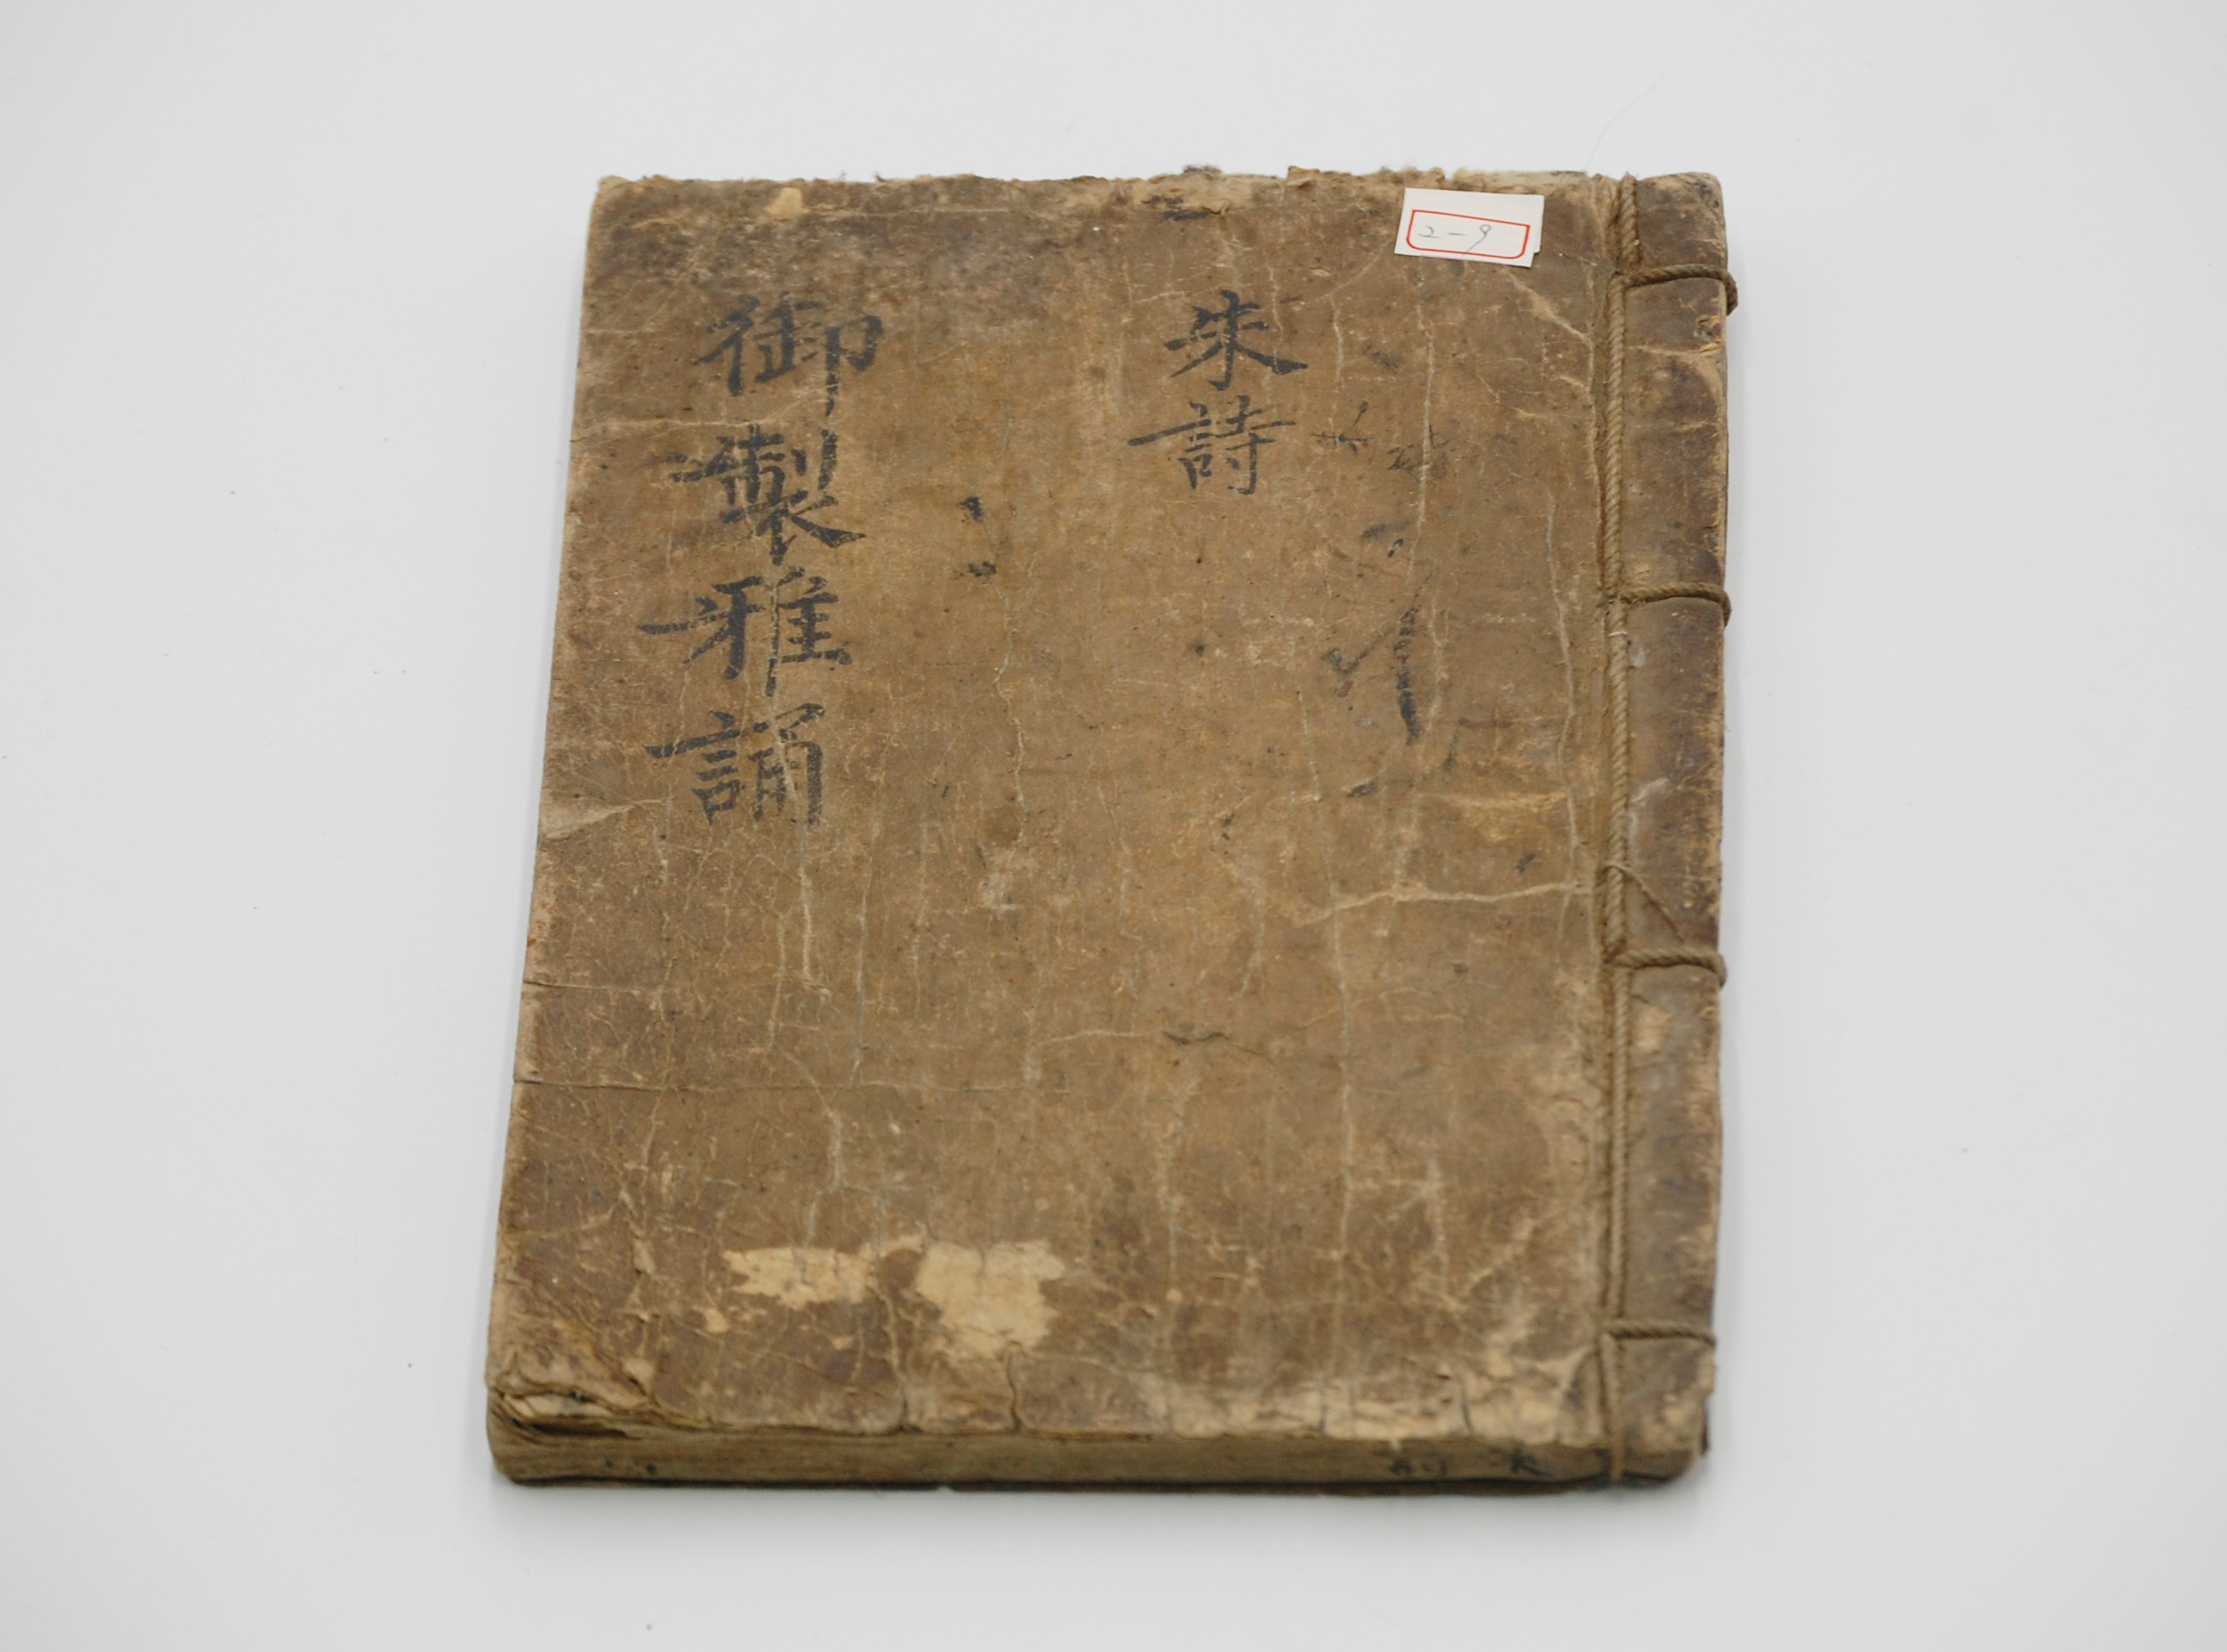 2-9
朱詩
御製雅誦